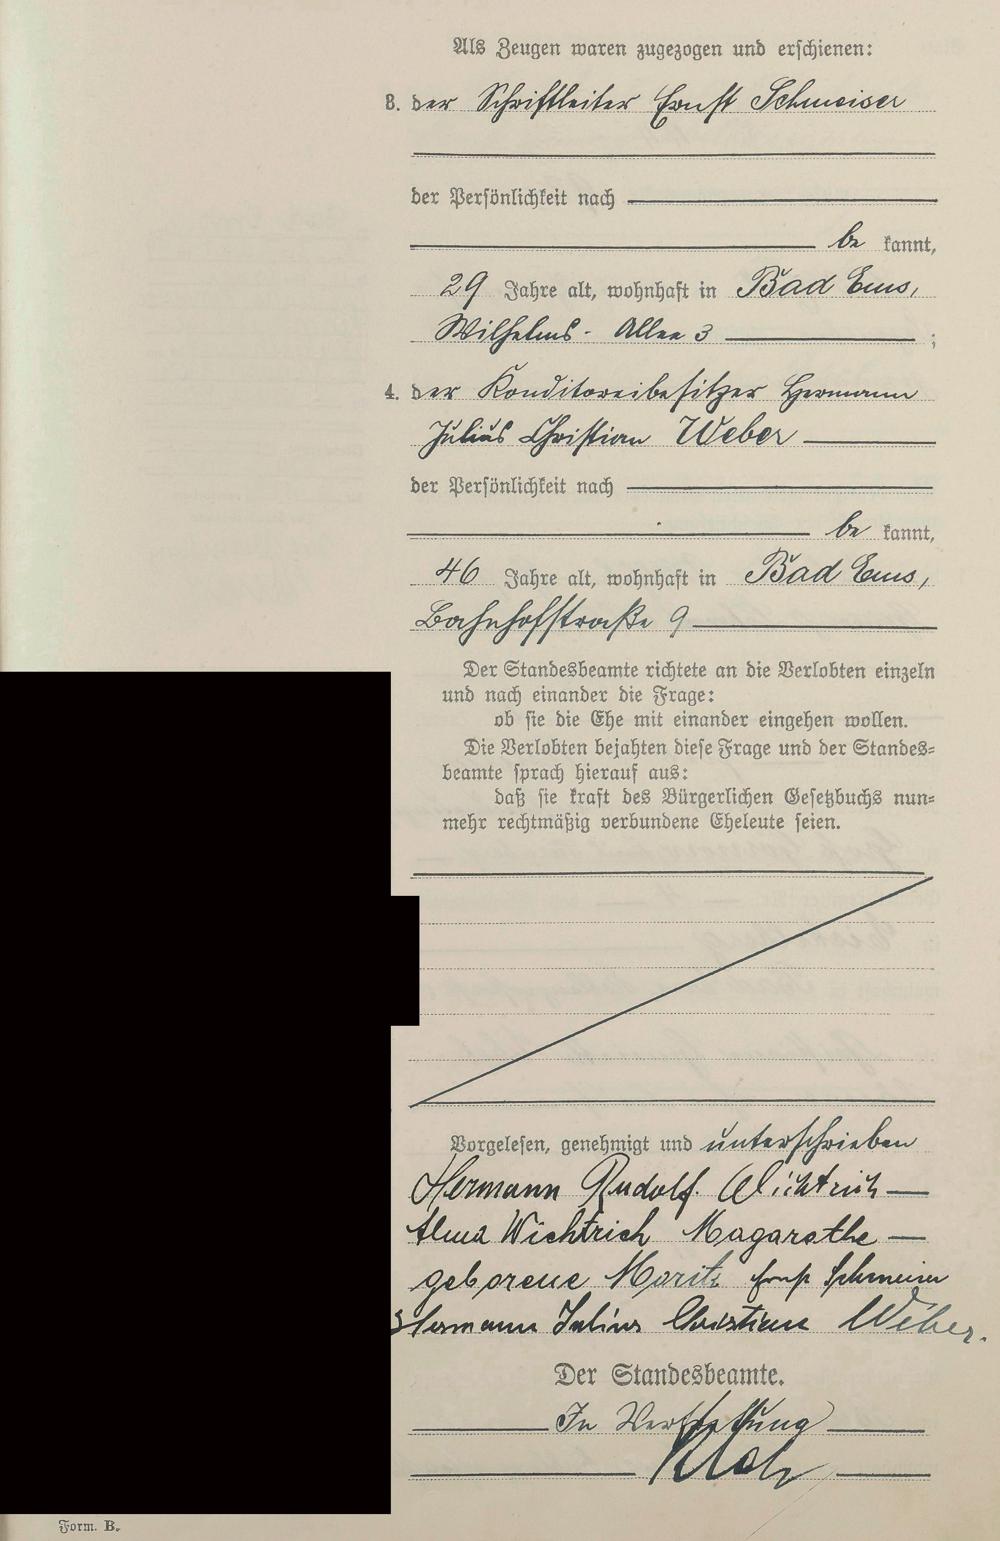 Als Zeugen waren zugezogen und erschienen:
3. der Schriftleiter Ernst Schmeiser
der Persönlichkeit nach
be kannt,
29 Jahre alt, wohnhaft in Bad Ems,
Wilhelms-Allee 3 ;
4. der Konditoreibesitzer Hermann
Julius Christian Weber
der Persönlichkeit nach
be kannt,
46 Jahre alt, wohnhaft in Bad Ems,
Bahnhofstraße 9
Der Standesbeamte richtete an die Verlobten einzeln
und nach einander die Frage:
ob sie die Ehe mit einander eingehen wollen.
Die Verlobten bejahten diese Frage und der Standes=
beamte sprach hierauf aus:
daß sie kraft des Bürgerlichen Gesetzbuchs nun=
mehr rechtmäßig verbundene Eheleute seien.
Vorgelesen, genehmigt und unterschrieben
Hermann Rudolf Wichtrich
Alma Wichtrich Magarethe
geborene Moritz Ernst Schmeiser
Hermann Julius Christian Weber.
Der Standesbeamte.
In Vertretung
Form. B.